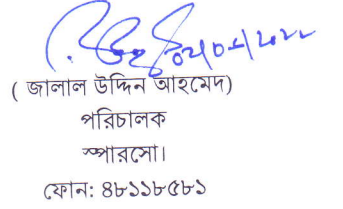 ( জালাল উদ্দিন আহমেদ)
পরিচালক
স্পারসো।
ফোন: ৪৮১১৮৫৮১